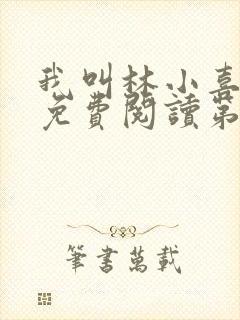 我叫林小喜
免費閱讀第
筆書萬載